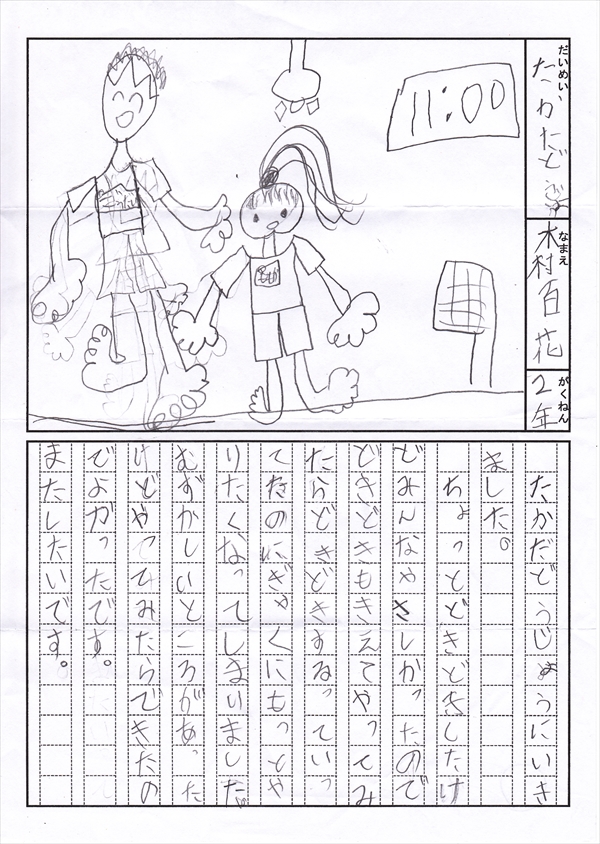 だいめい
たかたど
なまえ
木村百花
がくねん
2年
11:00
たかだどうじょうにいき
ました。
ちょっとどきどきしたけ
どみんなやさしかったので
どきどきもきえてやってみ
たらどきどきするっていっ
てたのにぎゃくにもっとや
りたくなってしまいました。
むずかしいところがあった
けどやってみたらできたの
でよかったです。
またしたいです。